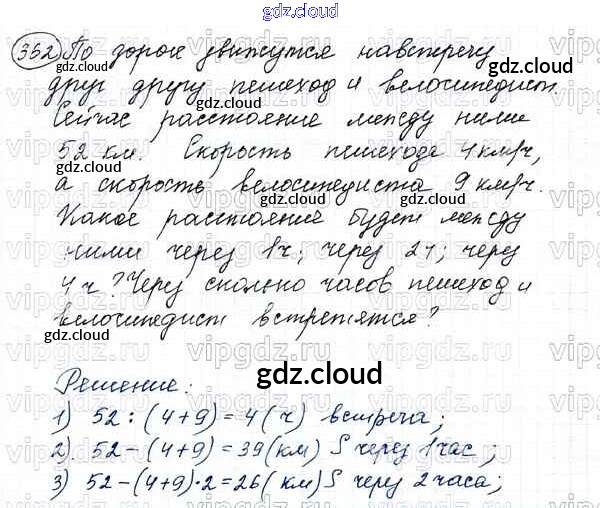 gdz.cloud
352 По дороге движутся навстречу
друг другу пешеход и велосипедист.
Сейчас расстояние между ними
52 км. Скорость пешехода 4 км/ч,
а скорость велосипедиста 9 км/ч.
Какое расстояние будет между
ними через 1 ч; через 2 ч; через
4 ч? Через сколько часов пешеход и
велосипедист встретятся?
Решение:
gdz.cloud
1) 52 : (4+9) = 4 (ч) встреча;
2) 52 - (4+9) = 39 (км) S через 1 час;
3) 52 - (4+9) · 2 = 26 (км) S через 2 часа;